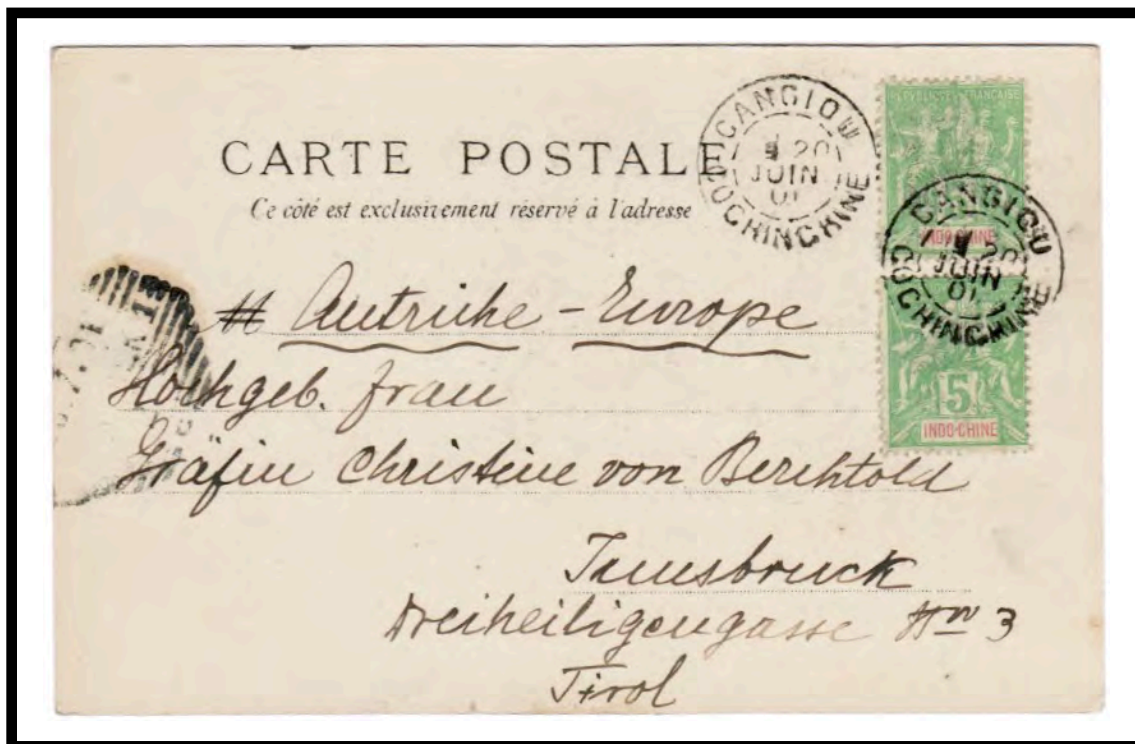 CARTE POSTALE
Ce côté est exclusivement réservé à l'adresse
CANGIOU
20
JUIN
01
COCHINCHINE
RÉPUBLIQUE FRANÇAISE
INDO-CHINE
CANGIOU
20
JUIN
01
COCHINCHINE
5
INDO-CHINE
Autriche - Europe
Hochgeb. Frau
Gräfin Christine von Berchtold
Innsbruck
Dreiheiligengasse Nro 3
Tirol